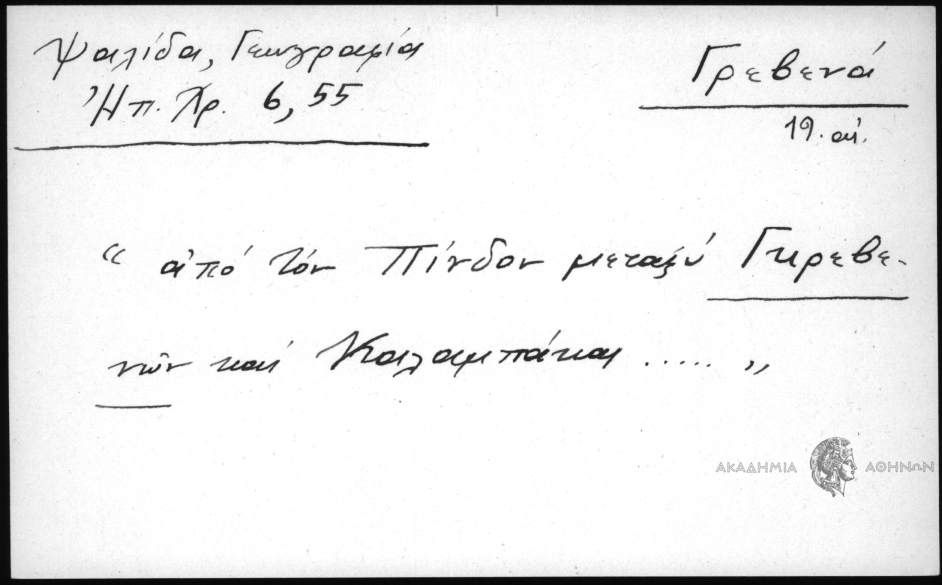 Ψαλίδα, Γεωγραφία
Ἠπ. Χρ. 6, 55
Γρεβενά
19. αἰ.
“ ἀπό τόν Πίνδον μεταξύ Γκρεβε-
νῶν καί Καλαμπάκας ..... „
ΑΚΑΔΗΜΙΑ ΑΘΗΝΩΝ